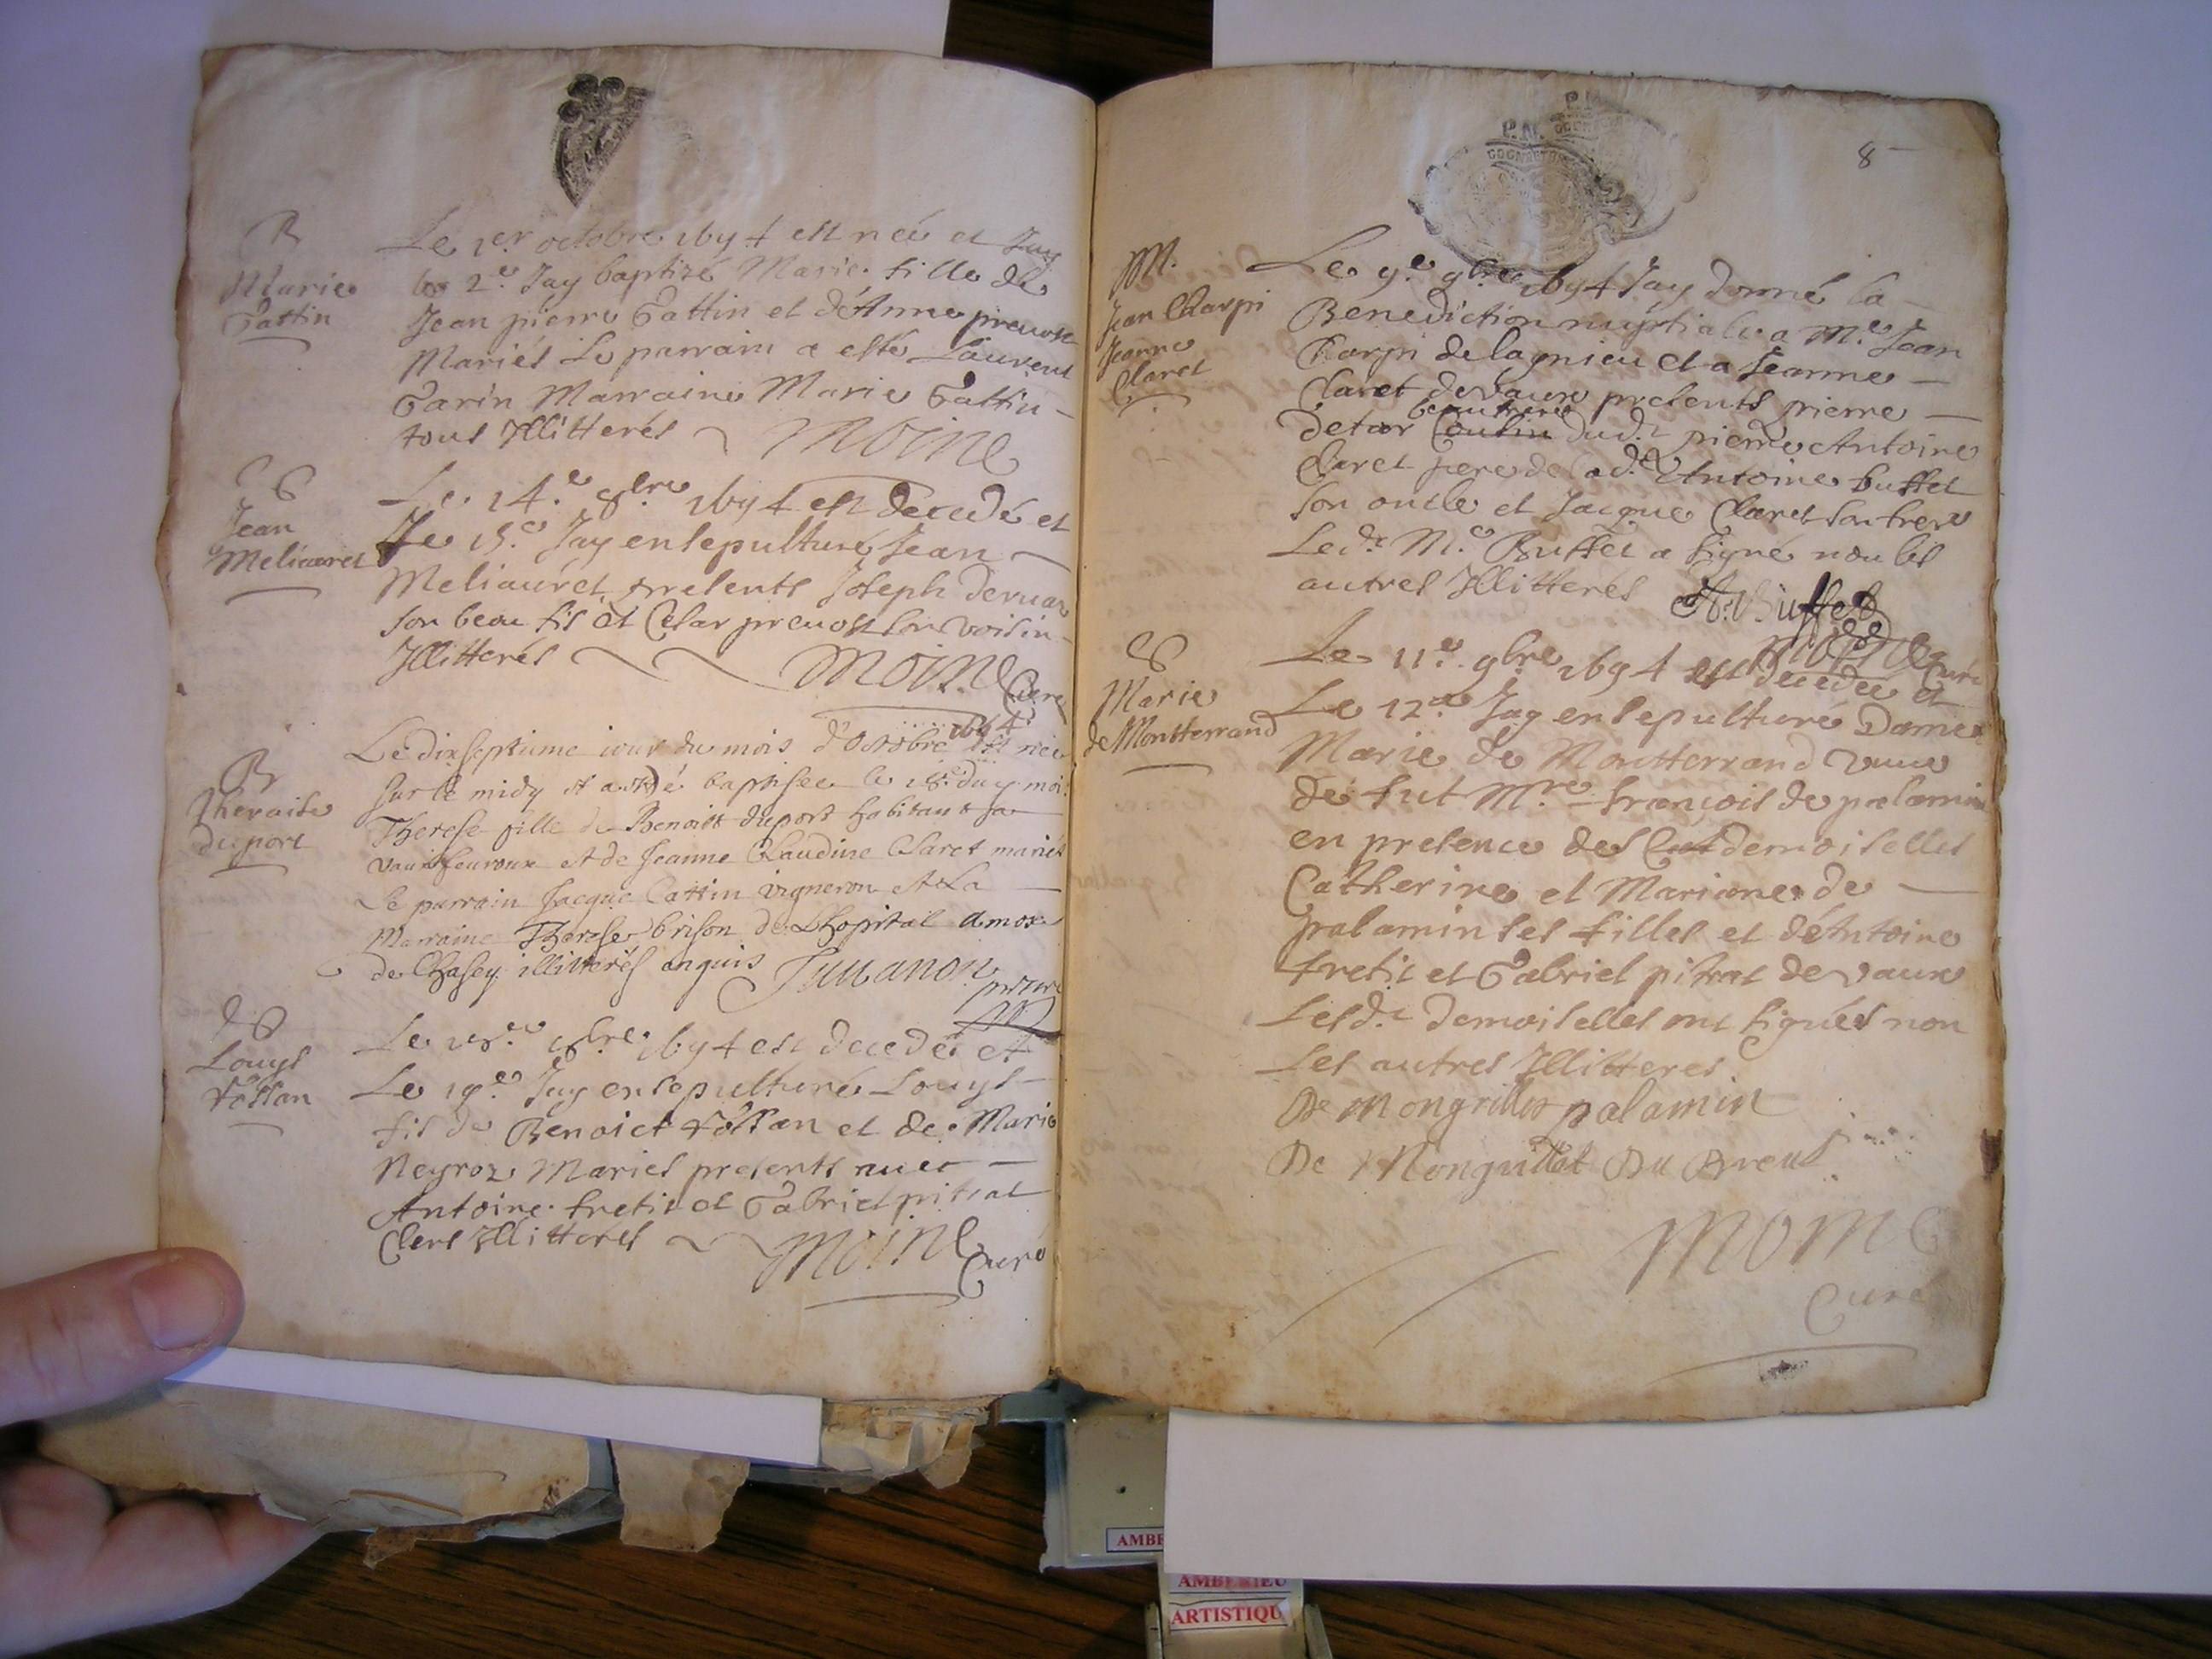 B
Marie
Tattin
Le 1er octobre 1694 est neé et
le 2e Jay baptizé Marie fille de
Jean pierre Tattin et de Anne preuost
Mariés Le parrain a esté Laurent
Tarin Marraine Marie Tattin
tous Illitterés Moine
Jean
Meliauret
Le 14.e 8bre 1694 est decedé et
le 15.e Jay ensepulturé Jean
Meliauret presents Joseph
son beau fis et Cesar preuost son voisin
Illitterés Moine Curé
B
Theraise
duport
Le dixseptieme iour du mois d'Octobre 1694 est née
sur le midy et a esté baptisee le 18e du mois
Therese fille de Benoist duport habitant a
vaux feuroux et de Jeanne Claudine Claret mariés
le parrain Jacque Cattin vigneron et La
Marraine Therese brison de Lhopital
de Chasey illitterés
Louys
fossan
Le 18.e 8bre 1694 est decedé et
Le 19.e Jay ensepulturé Louys
fis de Benoict fossan et de Marie
Neyroz Mariés presents
Antoine fretit et Gabriel pitrat
Clers Illitterés Moine
Curé
8
P.N.
M.
Jean Charpi
Jeanne
Claret
Le 9.e 9bre 1694 Jay donné la
Benediction nuptiale a M.e Jean
Charpi de lagnieu et a Jeanne
Claret de vaux presents pierre
beaufrere
Cousin dud.t pierre Antoine
Claret pere de lad.e Antoine buffet
son oncle et Jacque Claret son frere
Led.t M.e Buffet a signé non les
autres Illitterés A. Buffet
Moine Curé
Marie
de Montferrand
Le 11.e 9bre 1694 est decedeé et
Le 12.e Jay ensepulturé Dame
Marie de Montferrand veuue
de fut Mre françois de palamin
en presence des demoiselles
Catherine et Mariane de
palamin ses filles et de Antoine
fretit et Gabriel pitrat de vaux
Lesd.t demoiselles ont signés non
les autres Illitteres
De Mongrillet palamin
De Mongrillet Du Breul
Moine
Curé
AMBE
AMBERIEU
ARTISTIQU